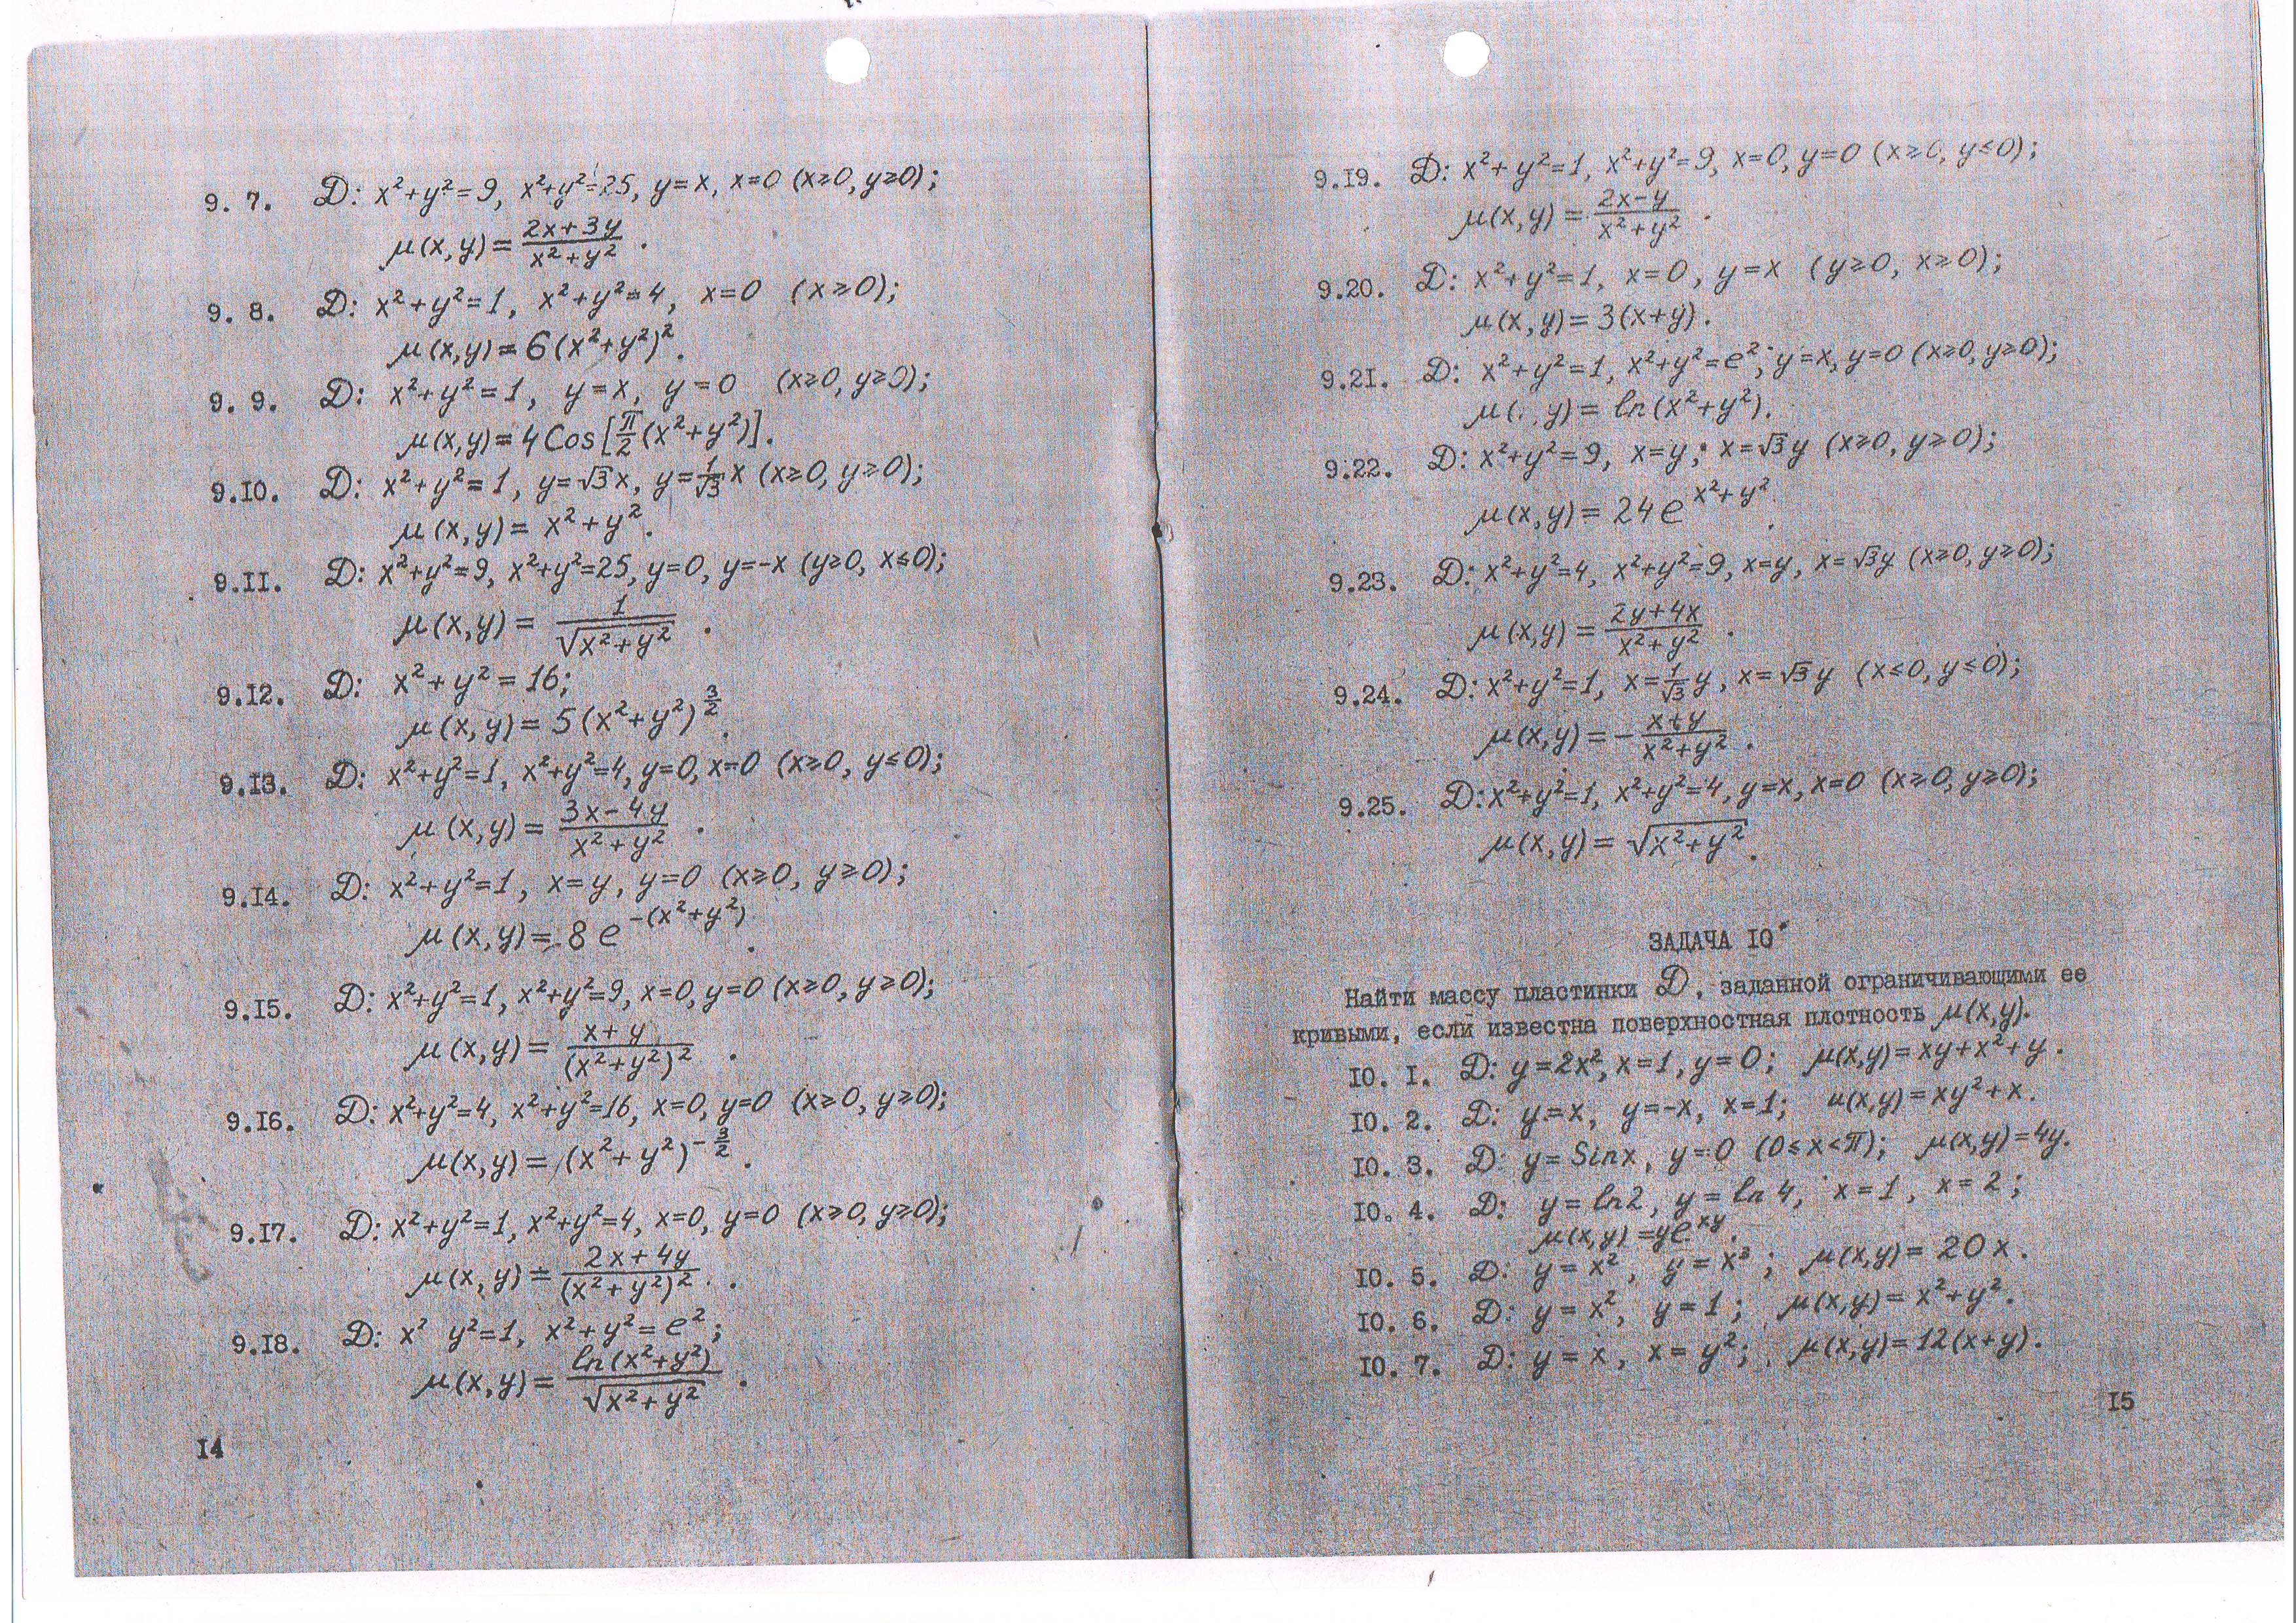 9. 7. D: x²+y²=9, x²+y²=25, y=x, x=0 (x≥0, y≥0);
μ(x,y) = (2x+3y)/(x²+y²).
9. 8. D: x²+y²=1, x²+y²=4, x=0 (x≥0);
μ(x,y) = 6(x²+y²)².
9. 9. D: x²+y²=1, y=x, y=0 (x≥0, y≥0);
μ(x,y) = 4Cos[π/2(x²+y²)].
9.10. D: x²+y²=1, y=√3x, y=1/√3 x (x≥0, y≥0);
μ(x,y) = x²+y².
9.11. D: x²+y²=9, x²+y²=25, y=0, y=-x (y≥0, x≤0);
μ(x,y) = 1/√(x²+y²).
9.12. D: x²+y²=16;
μ(x,y) = 5(x²+y²)^(3/2).
9.13. D: x²+y²=1, x²+y²=4, y=0, x=0 (x≥0, y≤0);
μ(x,y) = (3x-4y)/(x²+y²).
9.14. D: x²+y²=1, x=y, y=0 (x≥0, y≥0);
μ(x,y) = 8e^(-(x²+y²)).
9.15. D: x²+y²=1, x²+y²=9, x=0, y=0 (x≥0, y≥0);
μ(x,y) = (x+y)/(x²+y²)².
9.16. D: x²+y²=4, x²+y²=16, x=0, y=0 (x≥0, y≥0);
μ(x,y) = (x²+y²)^(-3/2).
9.17. D: x²+y²=1, x²+y²=4, x=0, y=0 (x≥0, y≥0);
μ(x,y) = (2x+4y)/(x²+y²)².
9.18. D: x² y²=1, x²+y²=e²;
μ(x,y) = ln(x²+y²)/√(x²+y²).
14
9.19. D: x²+y²=1, x²+y²=9, x=0, y=0 (x≥0, y≤0);
μ(x,y) = (2x-y)/(x²+y²).
9.20. D: x²+y²=1, x=0, y=x (y≥0, x≥0);
μ(x,y) = 3(x+y).
9.21. D: x²+y²=1, x²+y²=e², y=x, y=0 (x≥0, y≥0);
μ( , y) = ln(x²+y²).
9.22. D: x²+y²=9, x=y, x=√3y (x≥0, y≥0);
μ(x,y) = 24e^(x²+y²).
9.23. D: x²+y²=4, x²+y²=9, x=y, x=√3y (x≥0, y≥0);
μ(x,y) = (2y+4x)/(x²+y²).
9.24. D: x²+y²=1, x=1/√3 y, x=√3y (x≤0, y≤0);
μ(x,y) = -(x+y)/(x²+y²).
9.25. D: x²+y²=1, x²+y²=4, y=x, x=0 (x≥0, y≥0);
μ(x,y) = √(x²+y²).
ЗАДАЧА 10
Найти массу пластинки D, заданной ограничивающими ее
кривыми, если известна поверхностная плотность μ(x,y).
10. 1. D: y=2x², x=1, y=0; μ(x,y)=xy+x²+y.
10. 2. D: y=x, y=-x, x=1; μ(x,y)=xy²+x.
10. 3. D: y=Sinx, y=0 (0≤x≤π); μ(x,y)=4y.
10. 4. D: y=ln2, y=ln4, x=1, x=2;
μ(x,y)=ye^(xy).
10. 5. D: y=x², y=x³; μ(x,y)=20x.
10. 6. D: y=x², y=1; μ(x,y)=x²+y².
10. 7. D: y=x, x=y²; μ(x,y)=12(x+y).
15